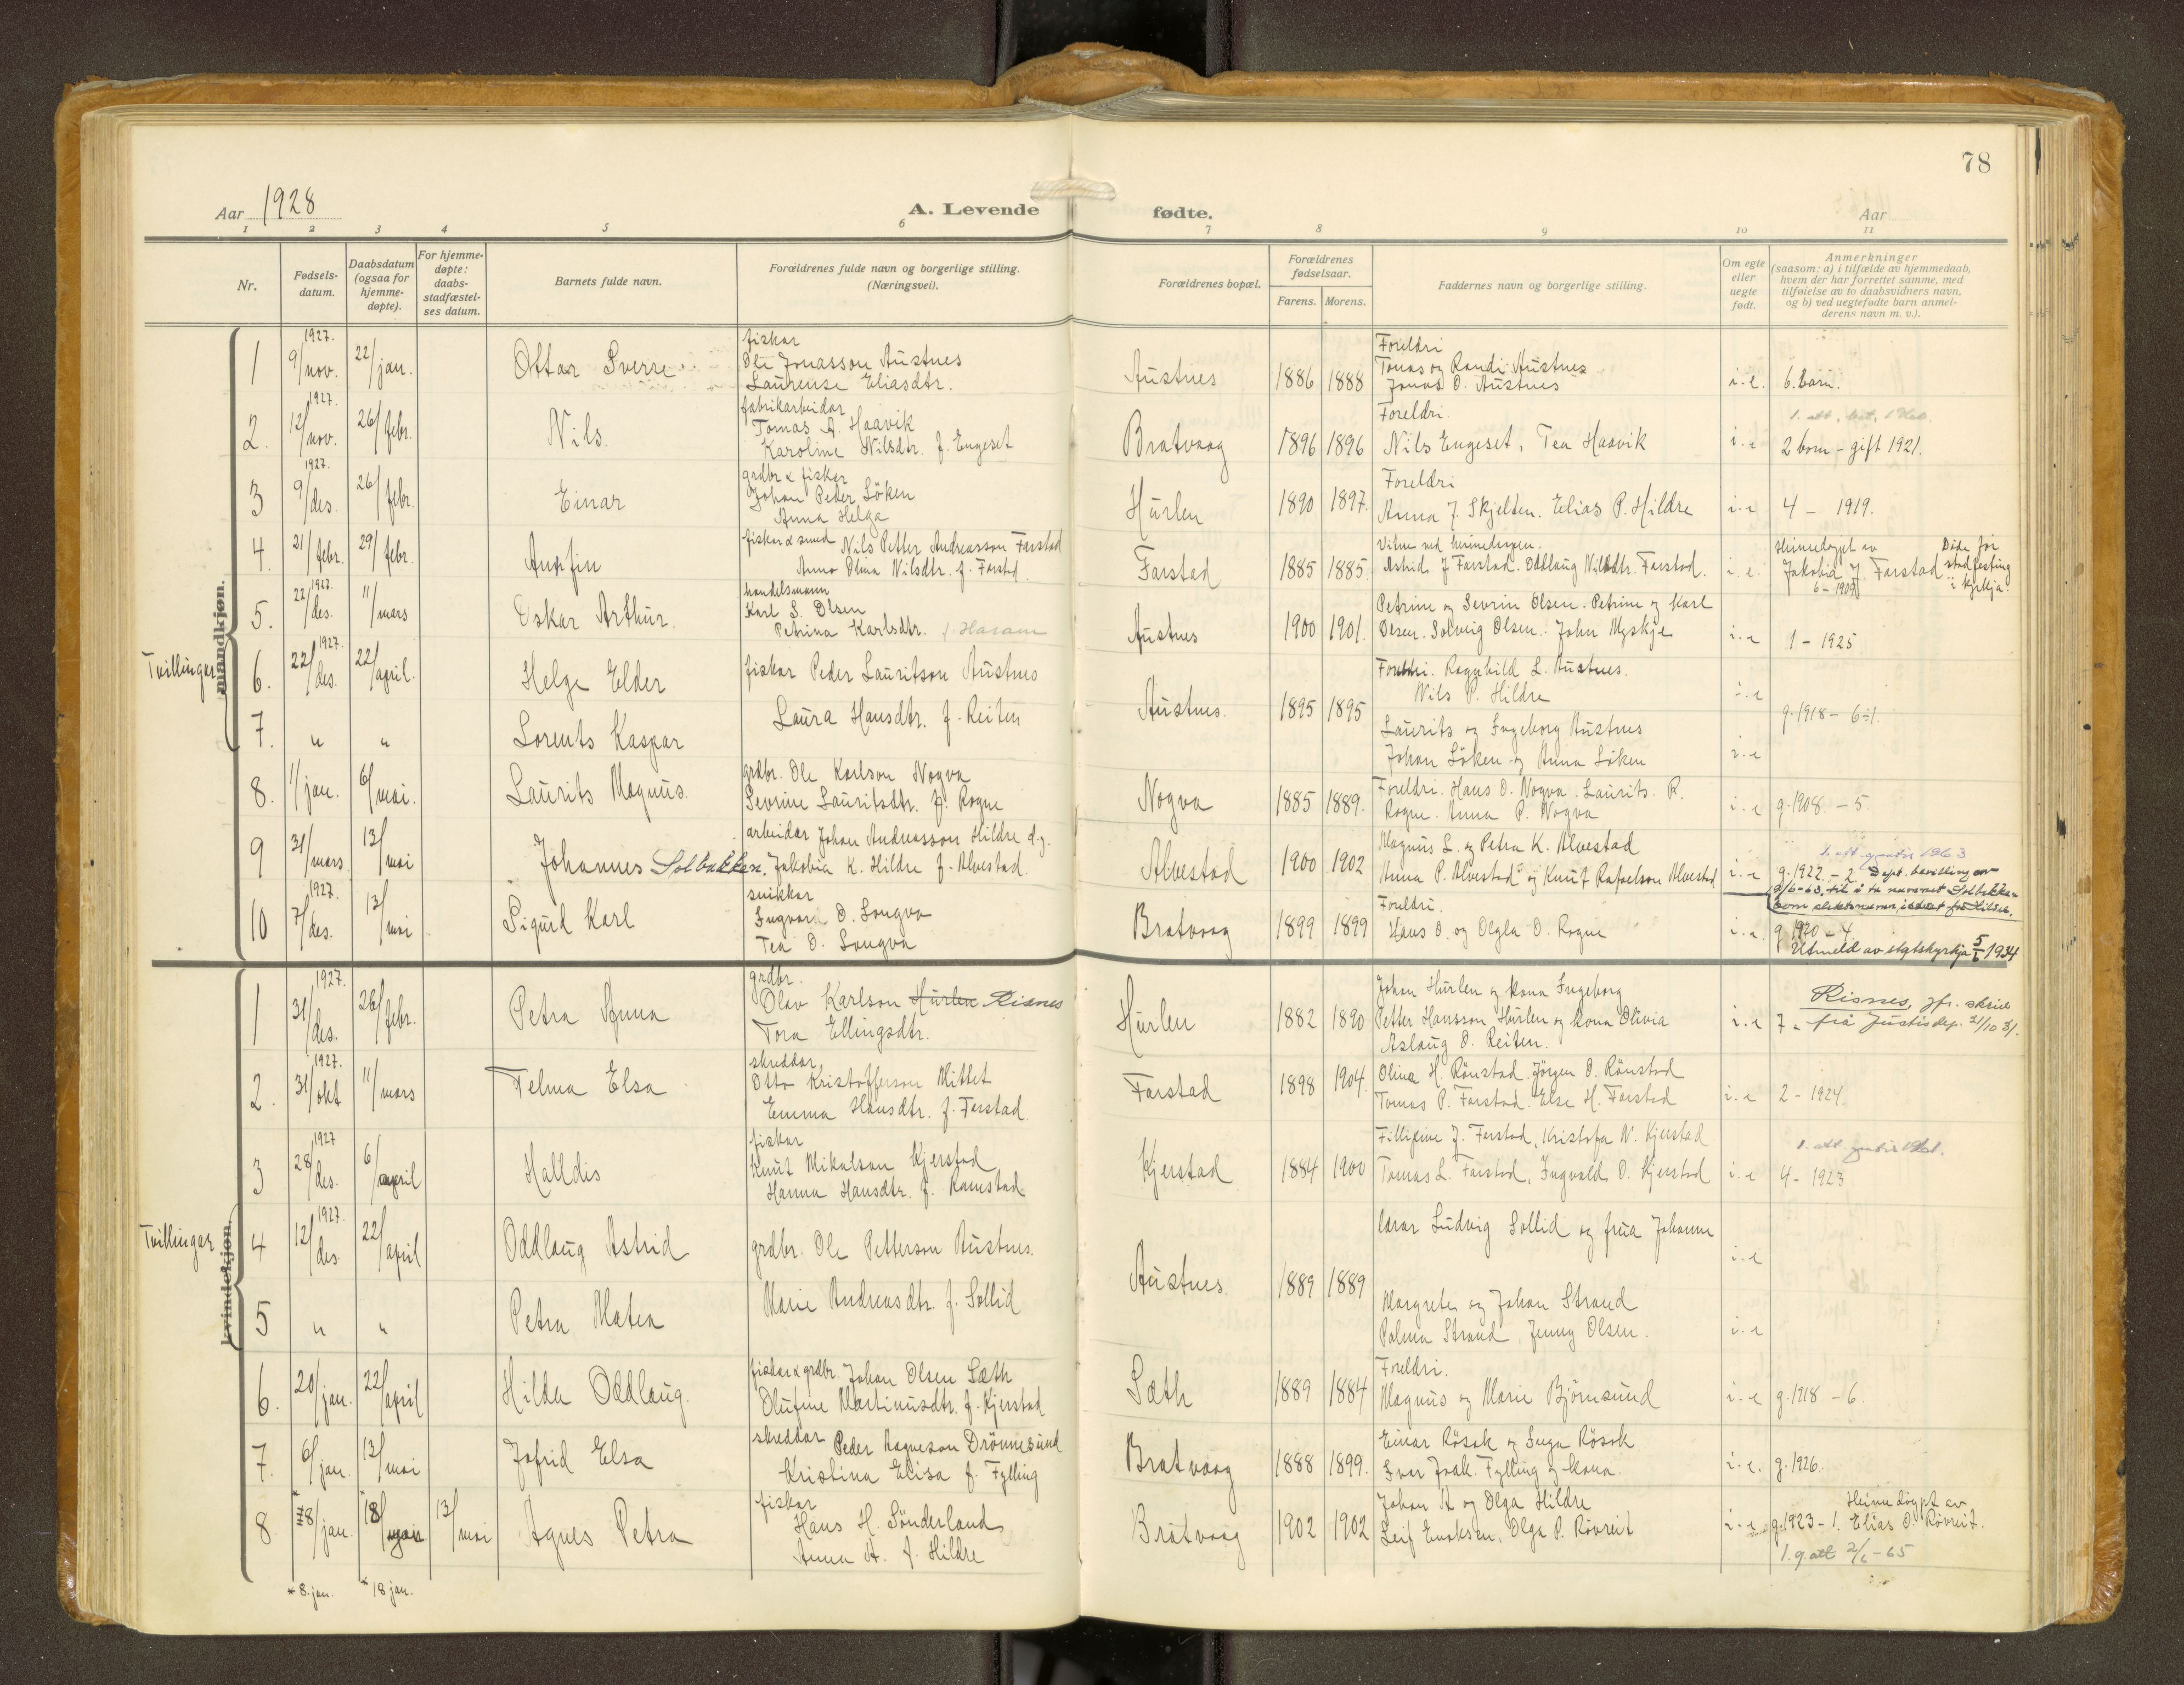 78
Aar 1928
A. Levende fødte.
Aar
1 2 3 4 5 6 7 8 9 10 11
Nr.
Fødsels-
datum.
Daabsdatum
(ogsaa for
hjemme-
døpte).
For hjemme-
døpte:
daabs-
stadfæstel-
ses datum.
Barnets fulde navn.
Forældrenes fulde navn og borgerlige stilling.
(Næringsvei).
Forældrenes bopæl.
Forældrenes
fødselsaar.
Farens. Morens.
Faddernes navn og borgerlige stilling.
Om egte
eller
uegte
født.
Anmerkninger
(saasom: a) i tilfælde av hjemmedaab,
hvem der har forrettet samme, med
tilføielse av to daabsvidners navn,
og b) ved uegtefødte barn anmel-
derens navn m. v.).
mandkjøn.
1 1927. 9/nov. 22/jan. Ottar Sverre
fiskar
Ole Jonasson Austnes
Laurense Eliasdtr.
Austnes 1886 1888
Foreldri
Tomas og Randi Austnes
Jonas O. Austnes
i.e. 6. barn.
2. 1927. 12/nov. 26/febr. Nils.
fabrikarbeidar
Tomas A. Haavik
Karoline Nilsdtr. f. Engeset
Bratvaag 1896 1896
Foreldri.
Nils Engeset, Tea Haavik
i.e 2 born - gift 1921.
3 1927. 9/des. 26/febr. Einar
grdbr & fisker
Johan Peder Löken
Anna Helga
Hurlen 1890 1897.
Foreldri
Anna J. Skjelten. Elias P. Hildre
i.e 4 - 1919.
4. 21/febr. 29/febr. Anfin
fiskar & smed Nils Petter Andreasson Farstad
Anna Olina Nilsdtr. f. Farstad
Farstad 1885 1885.
Astrid J Farstad. Oddlaug Nilsdtr. Farstad.
i.e. Heimedøypt av
Jakobia J. Farstad
6 - 1909
Døde før
stadfesting
i kyrkja.
5. 1927. 22/des. 11/mars Oskar Arthur.
handelsmann
Karl S. Olsen
Petrina Karlsdtr. f. Haram
Austnes 1900 1901.
Petrine og Sevrin Olsen. Petrine og Karl
Olsen. Solveig Olsen. John Myskje
i.e 1 - 1925
Tvillingar
6. 1927. 22/des. 22/april. Helge Elder
fiskar Peder Lauritson Austnes
Laura Hansdtr. f. Reiten
Austnes. 1895 1895
Foreldri. Ragnhild L. Austnes.
Nils P. Hildre
i.e g. 1918 - 6 ÷ 1.
7. " " Lorents Kaspar
Laurits og Ingeborg Austnes
Johan Löken og Anna Löken
i.e
8. 1/jan. 6/mai. Laurits Magnus.
grdbr. Ole Karlson Nogva
Sevrine Lauritsdtr. f. Rogne
Nogva 1885 1889.
Foreldri. Hans O. Nogva. Laurits. R.
Rogne. Anna P. Nogva
i.e g. 1908. - 5.
9 31/mars 13/mai Johannes Solbakken.
arbeidar Johan Andreasson Hildre d.y.
Jakobia K. Hildre f. Alvestad
Alvestad 1900 1902
Magnus L. og Petra K. Alvestad
Anna P. Alvestad og Knut Rafaelson Alvestad
i.e g. 1922. - 2. Dept. bevilling av
2/6-63, til å ta navnet Solbakken
som slektsnavn, istadt for Hildre.
10 1927. 7/des. 13/mai Sigurd Karl
snikkar
Ingvar O. Longva
Tea O. Longva
Bratvaag 1899 1899
Foreldri.
Hans O. og Olga O. Rogne
i.e g. 1920 - 4
Utmeld av statskyrkja 5/6 1934
kvindekjøn.
1 1927. 31/des. 26/febr. Petra Anna
grdbr.
Olav Karlson Hurlen Risnes
Tora Ellingsdtr.
Hurlen 1882 1890
Johan Hurlen og kona Ingeborg
Petter Hansson Hurlen og kona Olivia
Aslaug O. Reiten.
i.e 7 - Risnes, jfr. skriv
frå Justisdep. 21/10 31.
2. 1927. 31/okt 11/mars Telma Elsa
skreddar
Otto Kristofferson Mittet
Emma Hansdtr. f. Farstad
Farstad 1898 1904.
Olina H. Rönstad. Jörgen O. Rönstad
Tomas P. Farstad. Else H. Farstad
i.e 2 - 1924.
3 1927 28/des. 6/april Halldis
fiskar
Knut Mikalson Kjerstad
Hanna Hansdtr. f. Ramstad
Kjerstad 1884 1900
Fillipine J. Farstad, Kristofa N. Kjerstad
Tomas L. Farstad, Ingvald O. Kjerstad
i.e 4 - 1923
Tvillingar
4 1927. 12/des. 22/april Oddlaug Astrid
grdbr. Ole Petterson Austnes.
Marie Andreasdtr. f. Sollid
Austnes. 1889 1889
lærar Ludvig Sollid og frua Johanne
i.e
5 " " Petra Matea
Margrete og Johan Strand
Palma Strand, Jenny Olsen.
i.e
6. 20/jan. 22/april Hilda Oddlaug.
fiskar & grdbr. Johan Olsen Sæth
Olufine Martinusdtr. f. Kjerstad
Sæth 1889 1884
Foreldri.
Magnus og Marie Björnsund
i.e g. 1918 - 6.
7. 6/jan. 13/mai Jofrid Elsa
skreddar Peder Ragneson Drönnesund
Kristina Elisa f. Fylling
Bratvaag 1888 1899.
Einar Rösok og Inga Rösok
Ivar Joak. Fylling og kona.
i.e. g. 1926.
8. 8/jan. 18/jan 13/mai Agnes Petra
fiskar
Hans H. Sönderland
Anna A. f. Hildre
Bratvaag 1902 1902
Johan A og Olga Hildre
Leif Enoksen, Olga P. Rövreit
i.e g. 1923 - 1. Heimedöypt av
Elias O. Rövreit.
1. g. att 2/6 - 65
* 8. jan. * 18 jan.